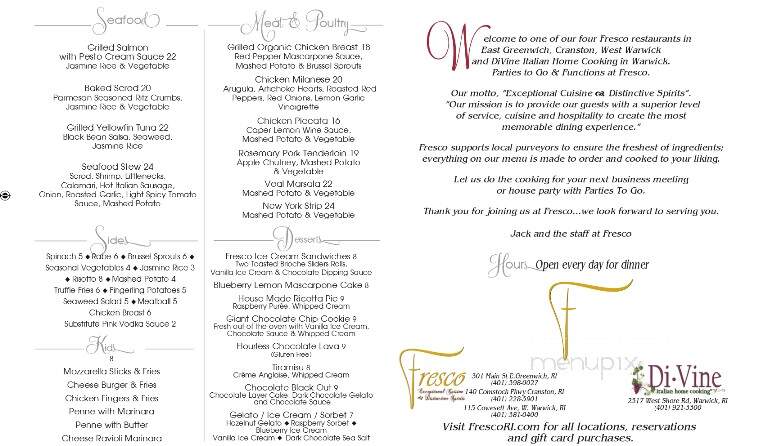 Seafood
Grilled Salmon
with Pesto Cream Sauce 22
Jasmine Rice & Vegetable
Baked Scrod 20
Parmesan Seasoned Ritz Crumbs,
Jasmine Rice & Vegetable
Grilled Yellowfin Tuna 22
Black Bean Salsa, Seaweed,
Jasmine Rice
Seafood Stew 24
Scrod, Shrimp, Littlenecks,
Calamari, Hot Italian Sausage,
Onion, Roasted Garlic, Light Spicy Tomato
Sauce, Mashed Potato
Sides
Spinach 5 ◆ Rabe 6 ◆ Brussel Sprouts 6 ◆
Seasonal Vegetables 4 ◆ Jasmine Rice 3
◆ Risotto 8 ◆ Mashed Potato 4
Truffle Fries 6 ◆ Fingerling Potatoes 5
Seaweed Salad 5 ◆ Meatball 5
Chicken Breast 6
Substitute Pink Vodka Sauce 2
Kids
8
Mozzarella Sticks & Fries
Cheese Burger & Fries
Chicken Fingers & Fries
Penne with Marinara
Penne with Butter
Cheese Ravioli Marinara
Meat & Poultry
Grilled Organic Chicken Breast 18
Red Pepper Mascarpone Sauce,
Mashed Potato & Brussel Sprouts
Chicken Milanese 20
Arugula, Artichoke Hearts, Roasted Red
Peppers, Red Onions, Lemon Garlic
Vinaigrette
Chicken Piccata 16
Caper Lemon Wine Sauce,
Mashed Potato & Vegetable
Rosemary Pork Tenderloin 19
Apple Chutney, Mashed Potato
& Vegetable
Veal Marsala 22
Mashed Potato & Vegetable
New York Strip 24
Mashed Potato & Vegetable
Desserts
Fresco Ice Cream Sandwiches 8
Two Toasted Brioche Sliders Rolls,
Vanilla Ice Cream & Chocolate Dipping Sauce
Blueberry Lemon Mascarpone Cake 8
House Made Ricotta Pie 9
Raspberry Purée, Whipped Cream
Giant Chocolate Chip Cookie 9
Fresh out of the oven with Vanilla Ice Cream,
Chocolate Sauce & Whipped Cream
Flourless Chocolate Lava 9
(Gluten Free)
Tiramisu 8
Crème Anglaise, Whipped Cream
Chocolate Black Out 9
Chocolate Layer Cake, Dark Chocolate Gelato
and Chocolate Sauce
Gelato / Ice Cream / Sorbet 7
Hazelnut Gelato ◆ Raspberry Sorbet ◆
Blueberry Ice Cream
Vanilla Ice Cream ◆ Dark Chocolate Sea Salt
Welcome to one of our four Fresco restaurants in
East Greenwich, Cranston, West Warwick
and DiVine Italian Home Cooking in Warwick.
Parties to Go & Functions at Fresco.
Our motto, "Exceptional Cuisine Distinctive Spirits".
"Our mission is to provide our guests with a superior level
of service, cuisine and hospitality to create the most
memorable dining experience."
Fresco supports local purveyors to ensure the freshest of ingredients;
everything on our menu is made to order and cooked to your liking.
Let us do the cooking for your next business meeting
or house party with Parties To Go.
Thank you for joining us at Fresco...we look forward to serving you.
Jack and the staff at Fresco
Hours Open every day for dinner
F
menupix
Fresco
Exceptional Cuisine
Distinctive Spirits
301 Main St E.Greenwich, RI
(401) 398-0027
140 Comstock Pkwy Cranston, RI
(401) 228-3901
115 Cowesett Ave, W. Warwick, RI
(401) 381-0400
Di•Vine
Italian home cooking
2317 West Shore Rd, Warwick, RI
(401) 921-3300
Visit FrescoRI.com for all locations, reservations
and gift card purchases.